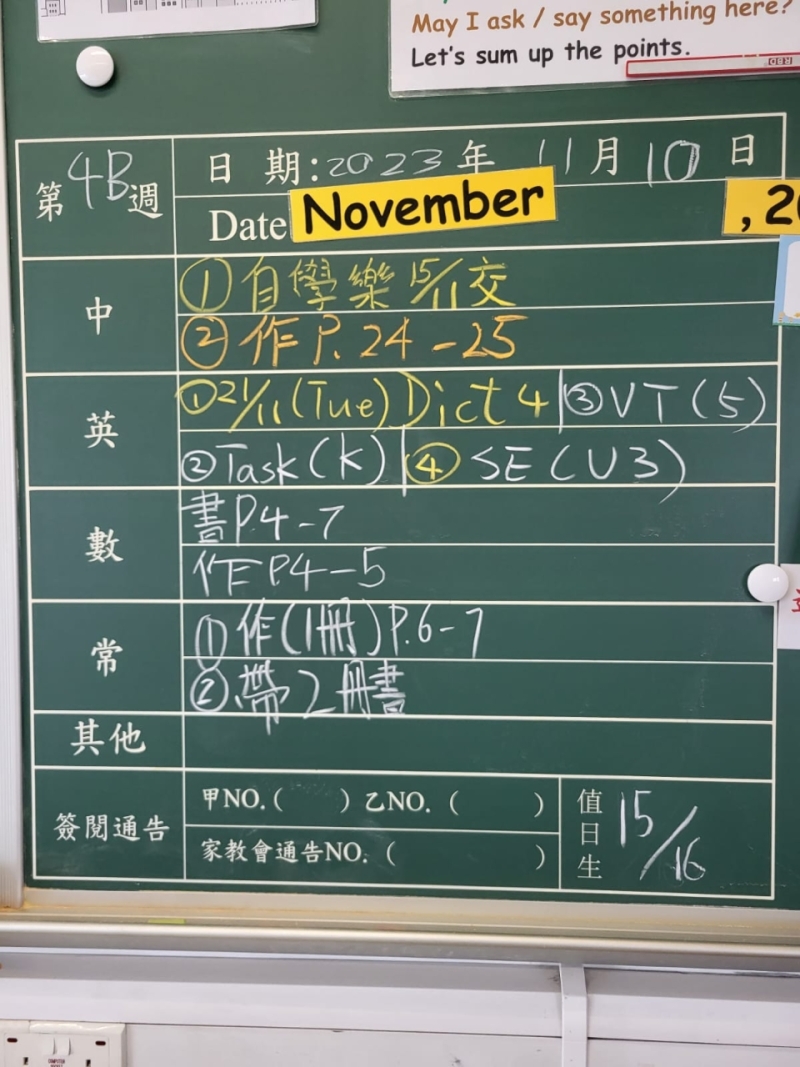 May I ask / say something here?
Let's sum up the points.
第4B週
日 期:2023年 11月10日
Date November , 20
中
①自學樂 15/11交
②作P.24-25
英
①21/11(Tue) Dict 4 ③VT(5)
②Task(K) ④SE(U3)
數
書P.4-7
作P.4-5
常
①作(1冊)P.6-7
②帶2冊書
其他
簽閱通告
甲NO.( ) 乙NO. ( )
家教會通告NO. ( )
值日生 15/16